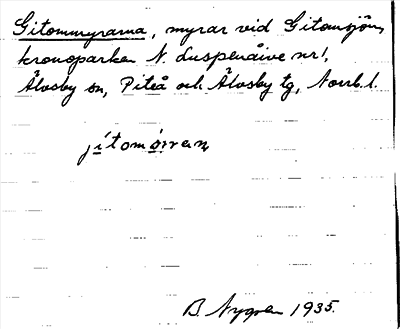 Gitommyrarna, myrar vid Gitomsjön,
kronoparken N. Luspenåive nr 1,
Älvsby sn, Piteå och Älvsby tg, Norrb. l.
jítomỏrran
B. Nygren 1935.